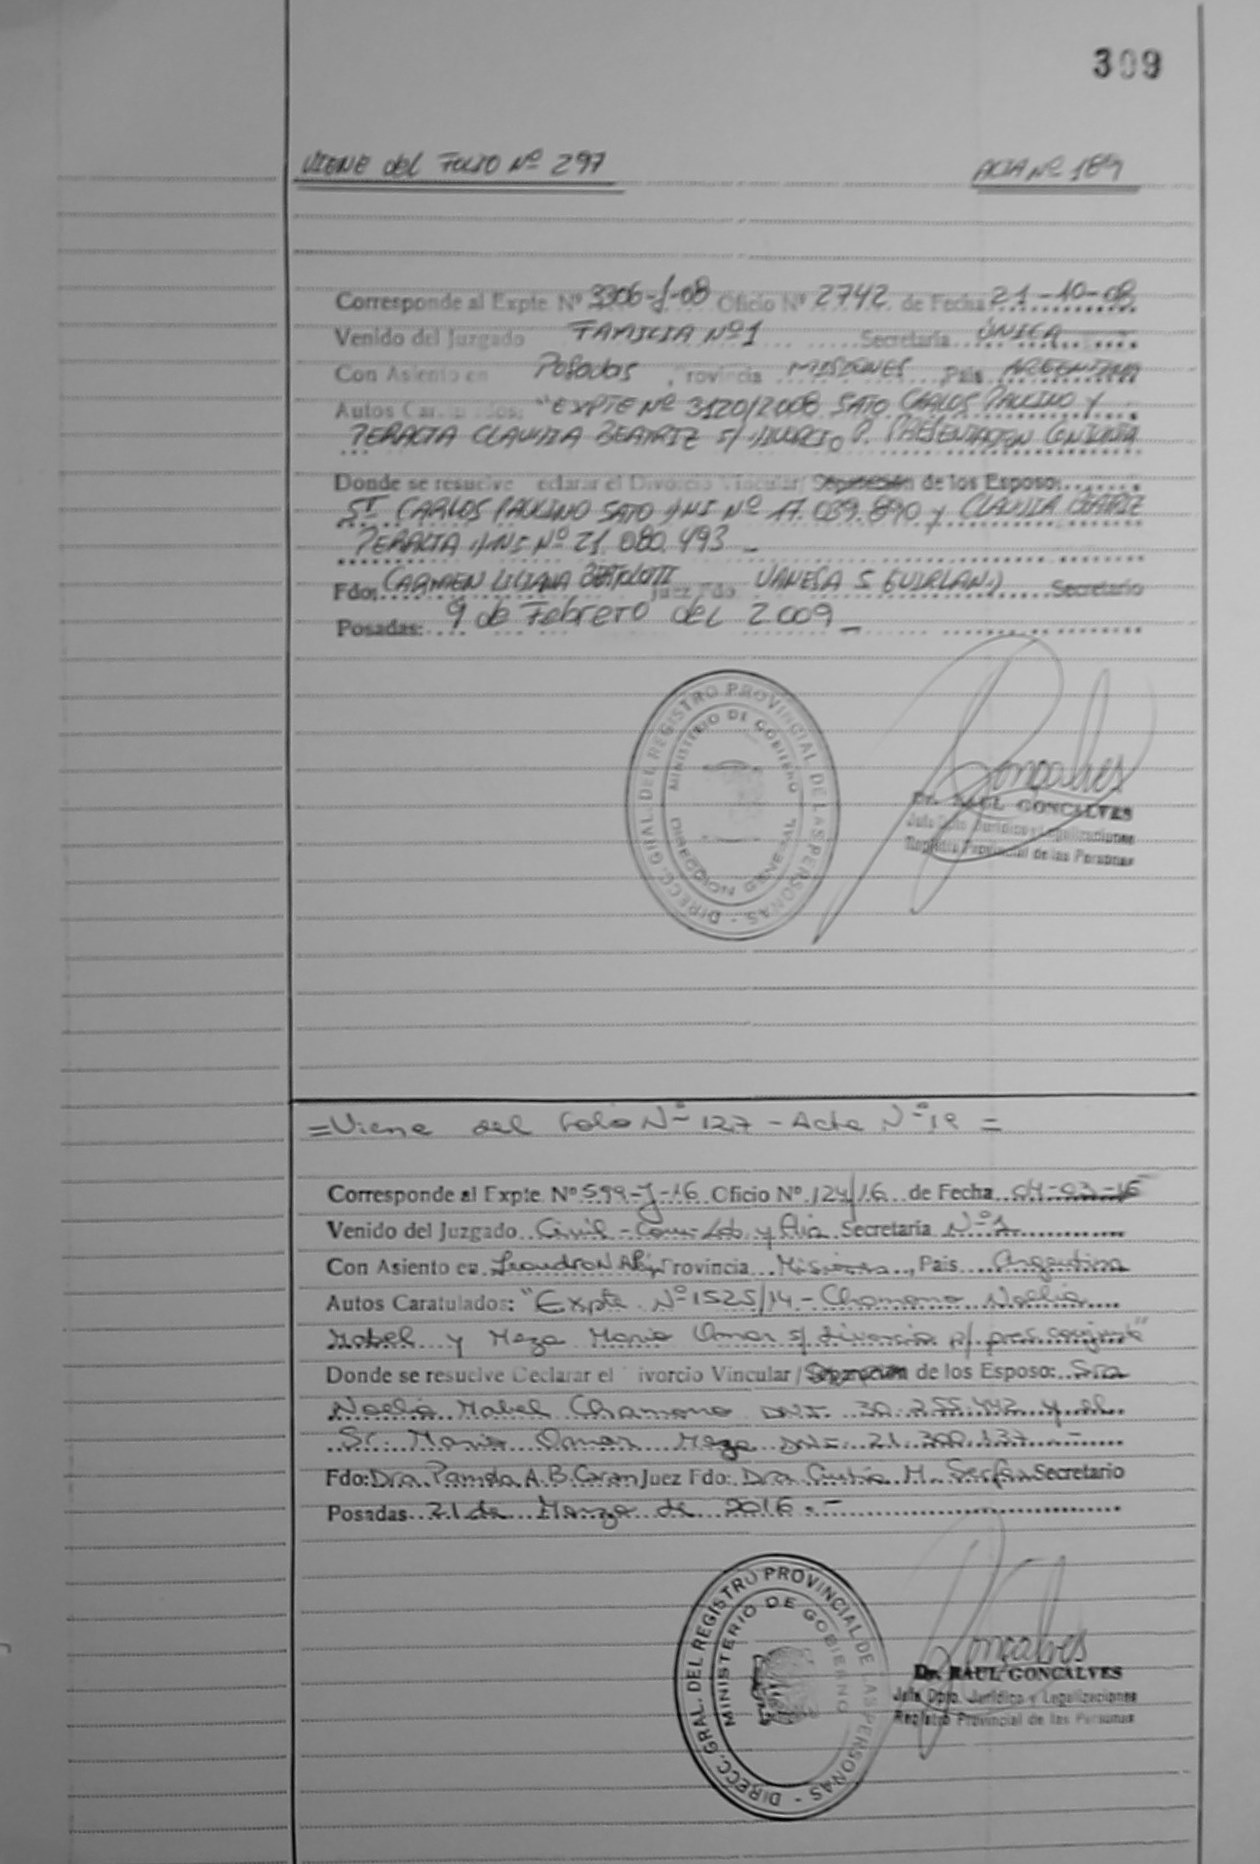 309
VIENE del FOLIO Nº 297
ACTA Nº 189
Corresponde al Expte Nº 3306-J-08 Oficio Nº 2742 de Fecha 21-10-08
Venido del Juzgado FAMILIA Nº 1 Secretaría ÚNICA
Con Asiento en Posadas, rovincia MISIONES, País ARGENTINA
Autos Caratulados: "EXPTE Nº 3120/2008 SATO CARLOS PAULINO Y
PERALTA CLAUDIA BEATRIZ S/ DIVORCIO P. PRESENTACION CONJUNTA
Donde se resuelve eclarar el Divorcio Vincular/ Separación de los Esposo:
Sr CARLOS PAULINO SATO DNI Nº 17.039.890 y CLAUDIA BEATRIZ
PERALTA DNI Nº 21.080.493 _
Fdo: CARMEN LILIANA Juez Fdo. VANESA S. Secretario
Posadas: 9 de Febrero del 2009 _
DIRECC. GRAL. DEL REGISTRO PROVINCIAL DE LAS PERSONAS -
MINISTERIO DE GOBIERNO
DIRECCION GENERAL
Goncalves
Dr. RAUL GONCALVES
Jefe Dpto. Jurídico y Legalizaciones
Registro Provincial de las Personas
= Viene del Folio Nº 127 - Acta Nº 19 =
Corresponde al Expte. Nº 599-J-16 Oficio Nº 124/16 de Fecha 04-03-16
Venido del Juzgado Civil - Com - Lab. y Flia Secretaría Nº 1
Con Asiento en Leandro N Alem, rovincia Misiones, País Argentina
Autos Caratulados: "Expte. Nº 1525/14 - Chamono Noelia
Mabel y Meza Mario Omar s/ divorcio p/ pres. conjunta"
Donde se resuelve Declarar el ivorcio Vincular/ Separación de los Esposo: Sra
Noelia Mabel Chamono DNI. 30.255.442 y el
Sr. Mario Omar Meza DNI. 21.300.137 -
Fdo: Dra. Pamela A. B. Juez Fdo: Dra. M. Secretario
Posadas 21 de Marzo de 2016.-
DIRECC. GRAL. DEL REGISTRO PROVINCIAL DE LAS PERSONAS -
MINISTERIO DE GOBIERNO
Goncalves
Dr. RAUL GONCALVES
Jefe Dpto. Jurídico y Legalizaciones
Registro Provincial de las Personas